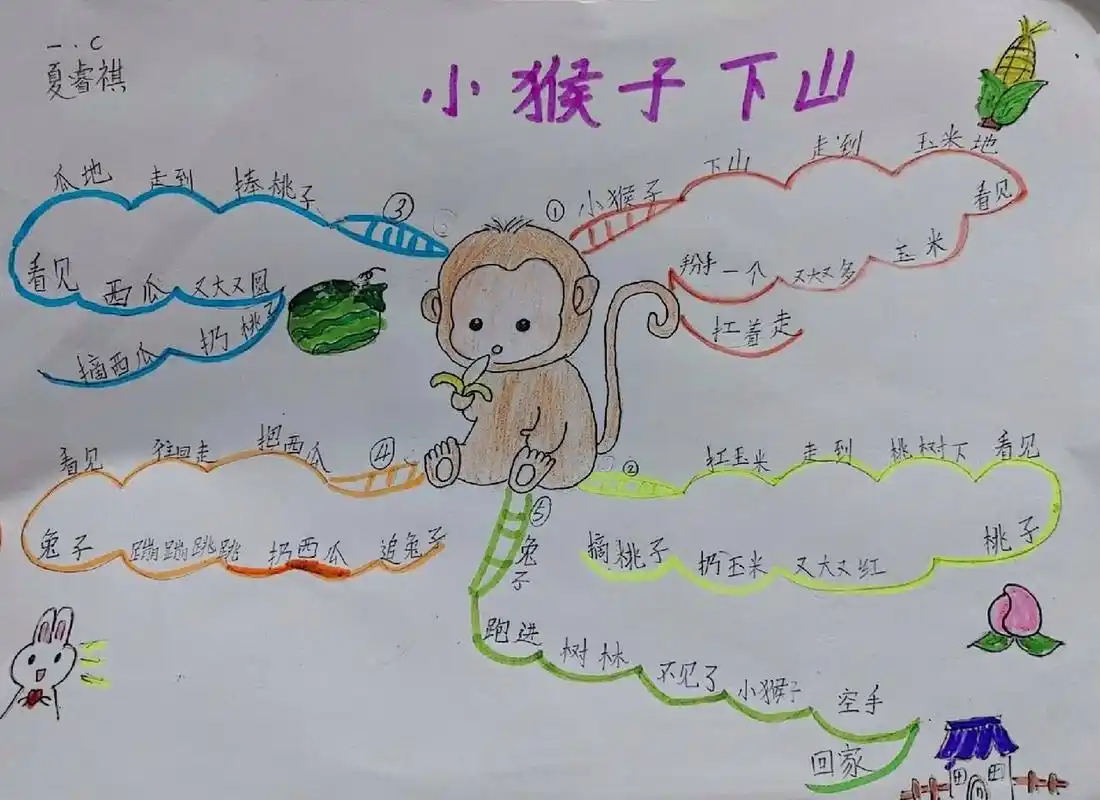 一.C
夏睿祺
小猴子下山
①
小猴子
下山
走到
玉米地
看见
玉米
又大又多
掰一个
扛着走
②
扛玉米
走到
桃树下
看见
桃子
又大又红
扔玉米
摘桃子
③
捧桃子
走到
瓜地
看见
西瓜
又大又圆
扔桃子
摘西瓜
④
把西瓜
往回走
看见
兔子
蹦蹦跳跳
扔西瓜
追兔子
⑤
兔子
跑进
树林
不见了
小猴子
空手
回家